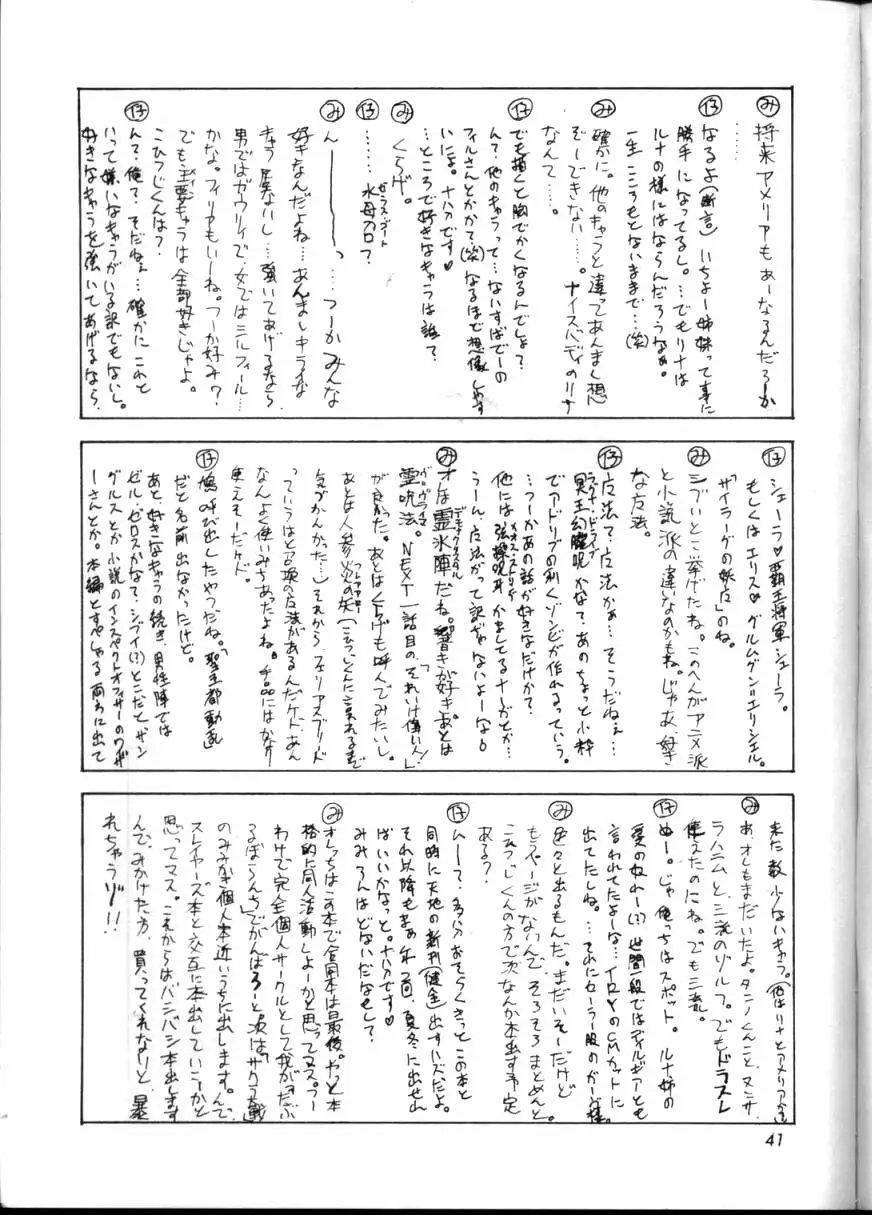 み 将来アメリアもあーなるんだろーか
……
仔 なるよ(断言)いちよー姉妹って事に
勝手になってるし。…でもリナは
ルナの様にはならんだろうなぁ。
一生こころもとないままで…(笑)
み 確かに。他のキャラと違ってあんまく想
ぞーできない……。ナイスバディのリナ
なんて……。
仔 でも描くと胸でかくなるんでしょ?
んで、他のキャラって…ないすばでーの
フィルさんとかかて?(笑)なるほど想像しやす
いによ。ナハハです♥
…ところで好きなキャラは誰?
み くらげ。
仔 ……水母スロ?
み んーーーーっ…つーかみんな
好きなんだよね…あんましキライな
きゃら居ないし…強いてあげるなら、
男ではガウリイで、女ではミルフィール…
かな。フィリアもいーね。つーか好み?
でも主要キャラは全部好きじゃよ。
こひつじくんは?
仔 んて?俺て?そだねぇ…確かにこれと
いって嫌いなキャラがいる訳でもないし。
好きなキャラを強いてあげるなら、
仔 シェーラ♥覇王将軍シェーラ。
もしくはエリス♥グルムグン=エリシエル。
「サイラーグの妖魔」のね。
み シブいとこ挙げたね。このへんがアニメ派
と小説派の違いなのかもね。じゃあ、好き
な方法。
仔 方法て?方法かぁ…そうだねぇ…
冥王幻朧呪かなて?あのちょっと小粋
でアドリブの利くゾンビが作れるっていう。
…つーかあの話が好きなだけかて?
他には
うーん、方法がって訳じゃないよーな。
み オは霊氷陣だね。響きが好き。あとは
霊呪法。NEXT一話目の「それいけ偉い人!」
が良かった。あとはくらげも呼んでみたいし。
あとは人参火の矢(こひつじくんに言われるまで
気づかんかった…)それから、フェリアスブリード
っていうはと召喚の方法があるんだケド、あん
なんよく使いみちあったよね。手品にはかなり
使えそーだケド。
仔 鳩呼び出したやつだね。「聖王都動乱」
だと名前出なかったけど。
あと、好きなキャラの続き、男性陣では
ゼル・ゼロスかなて?シブイ(?)とこだとザン
グルスとか小説のインスペクトオフィサーのワイザ
ーさんとか。本編とすぺしゃる両方に出て
来た数少ないキャラ。(他はリナとアメリア達)
み あ、オレもまだいたよ。タニノくんこと、ヌンサ、
ラハニムと、三流のゾルフ。でもドラスレ
使えたのにね。でも三流。
仔 ぬー。じゃ俺っちはスポット。ルナ姉の
愛の奴れー(?)世間一般ではディルギアとも
言われてたよーな…イロイロのCMカットに
出てたしね。…それにセーラー服のガーヴ様。
み 色々と出るもんだ。まだいそーだけど
もうページがないんで、そろそろまとめんと。
こひつじくんの方で次なんか本出す予定
ある?
仔 んーて?多分おそらくきっとこの本と
同時に天地の新刊(健全)出すハズだよ。
それ以降もまぁ年2回、夏冬に出せれ
ばいいかなっと。ナハハです♥
みみろんはどないだなして?
み オレっちはこの本で合同本は最後。やっと本
格的に同人活動しよーかと思ってマス。つー
わけで完全個人サークルとして我が「だぶ
るぽーらんさ」でがんばろーと。次は「サクラ大戦」
のみみなぎ個人本近いうちに出します。んで、
スレイヤーズ本と交互に本出していこーかと
思ってマス。これからはバシバシ本出します
んで、みかけた方、買ってくれないと、暴
れちゃうゾ!!
41